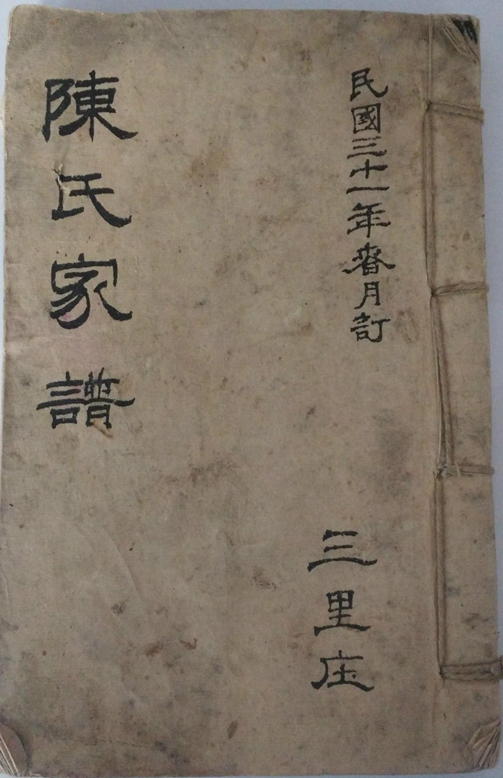 民國三十一年春月訂
三里庄
陳氏家譜